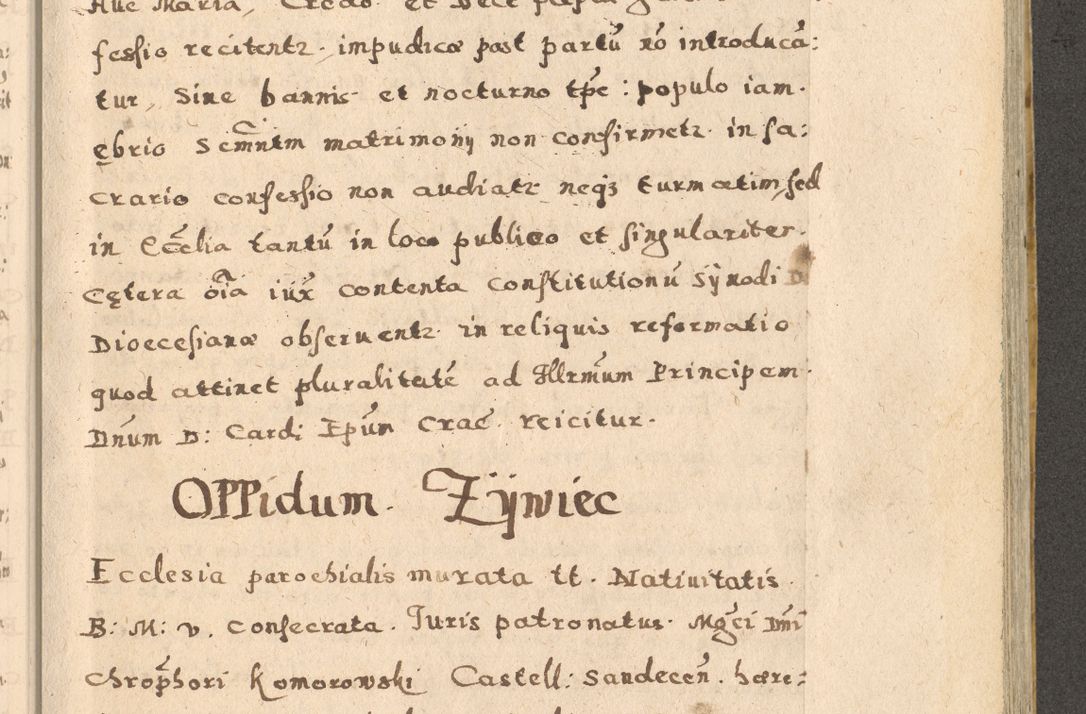 Aue Maria, Credo. et Dece
fessio recitentr. impudicæ post partũ nõ introducã:
tur, Sine bannis et nocturno tp̃e: populo iam.
ębrio Scmñtm matrimonij non confirmetr. in sa:
crario confessio non audiatr neqȝ turmatim, sed
in Ecc̃lia tantũ in loco publico et singulariter.
Cętera õia iux̃ contenta Constitutionũ Sÿnodi D
Dioecesianæ obseruentr. in reliquis reformatio
quod attinet pluralitatẽ ad Illrm̃um Principem.
Dñum D: Cardi Epũm Crac̃. reicitur.
Oppidum. Zÿwiec
Ecclesia parochialis murata tt. Natiuitatis.
B: M: V. Consecrata. Juris patronatus. Mgc̃i Dn̄i
Chrop̃hori Komorowski Castell: Sandecen̄. hære: